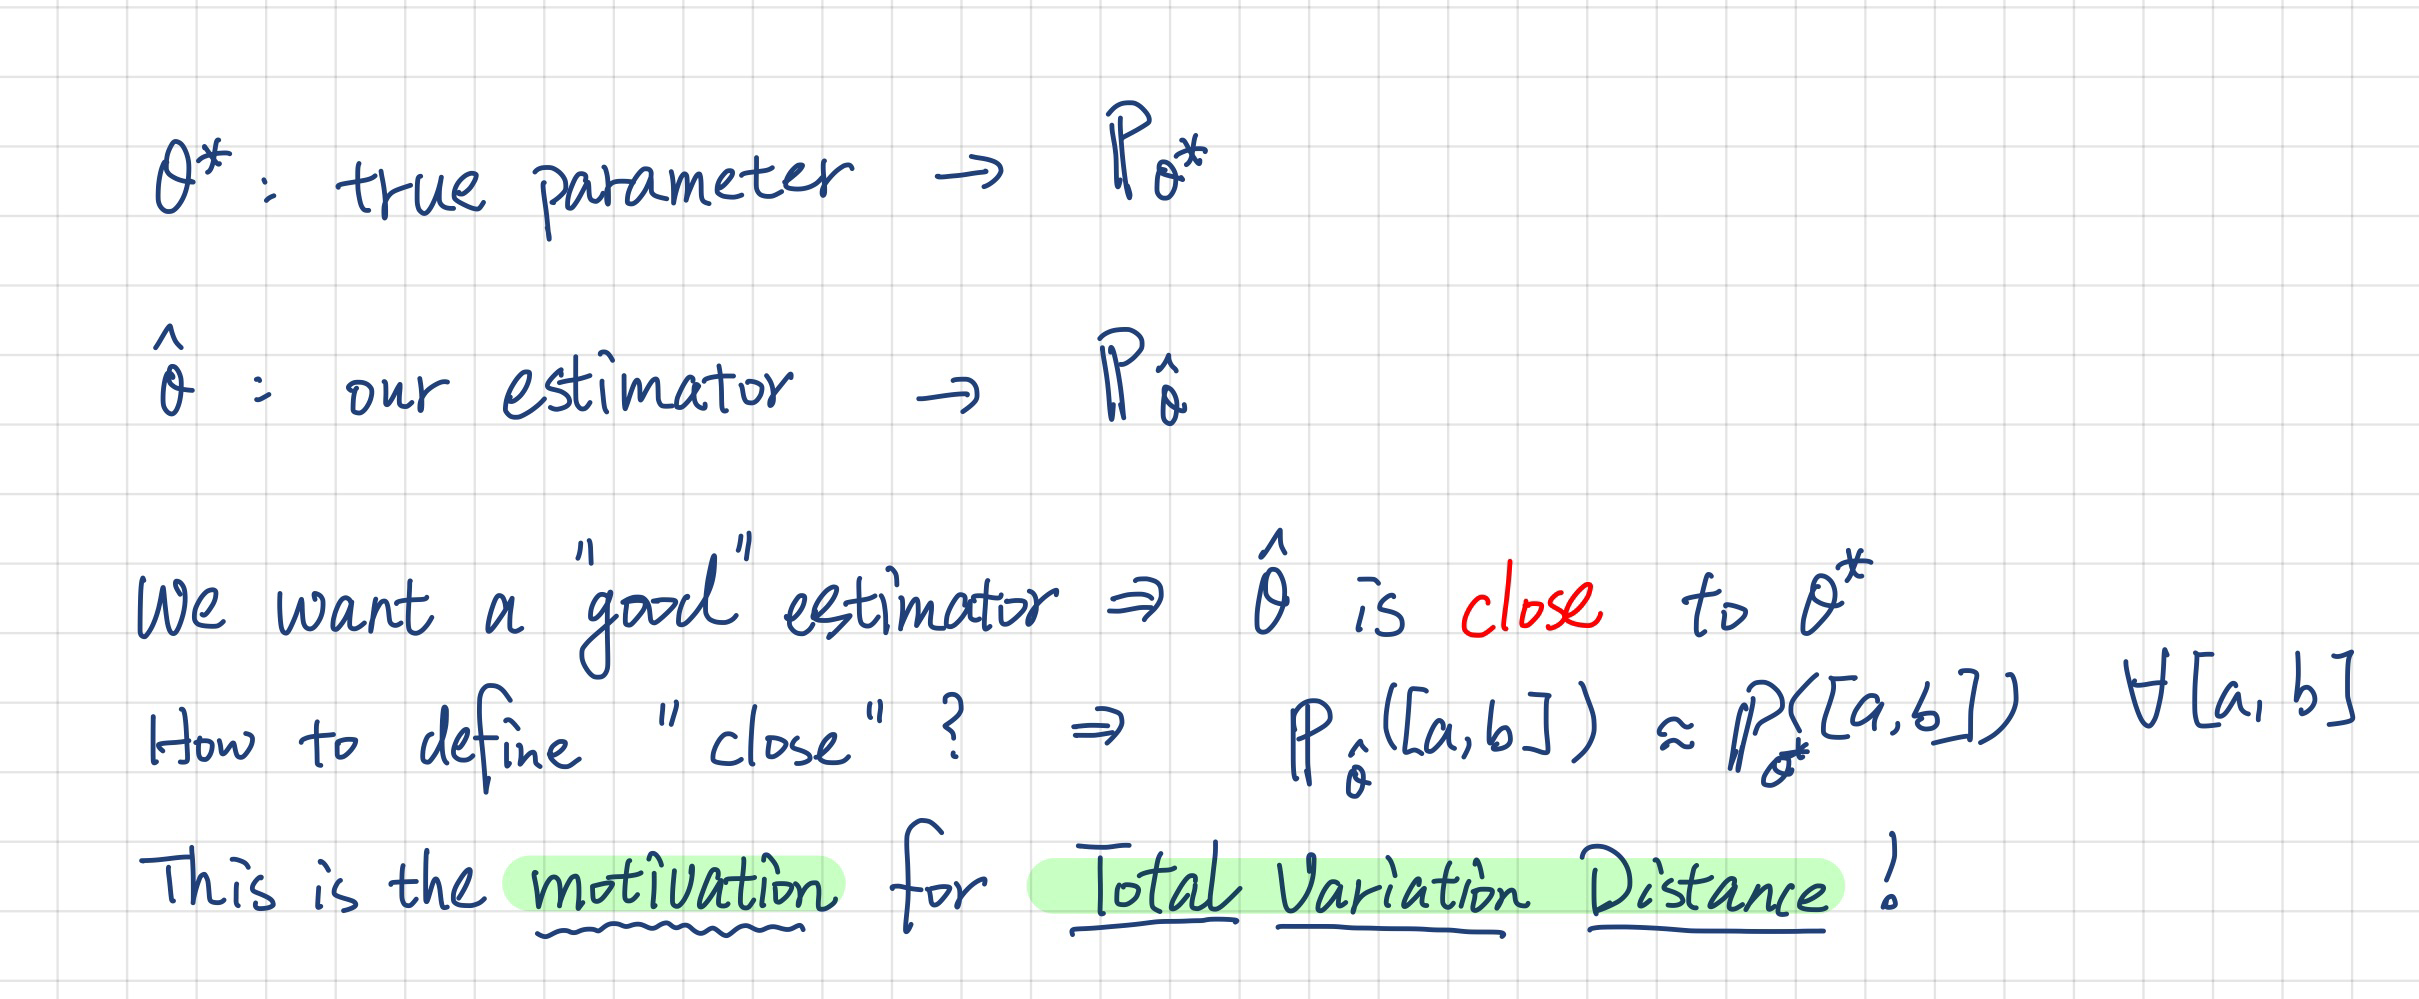 θ* : true parameter → ℙ_θ*
θ̂ : our estimator → ℙ_θ̂
We want a "good" estimator ⇒ θ̂ is close to θ*
How to define "close"? ⇒ ℙ_θ̂([a,b]) ≈ ℙ_θ*([a,b]) ∀[a,b]
This is the motivation for Total Variation Distance !